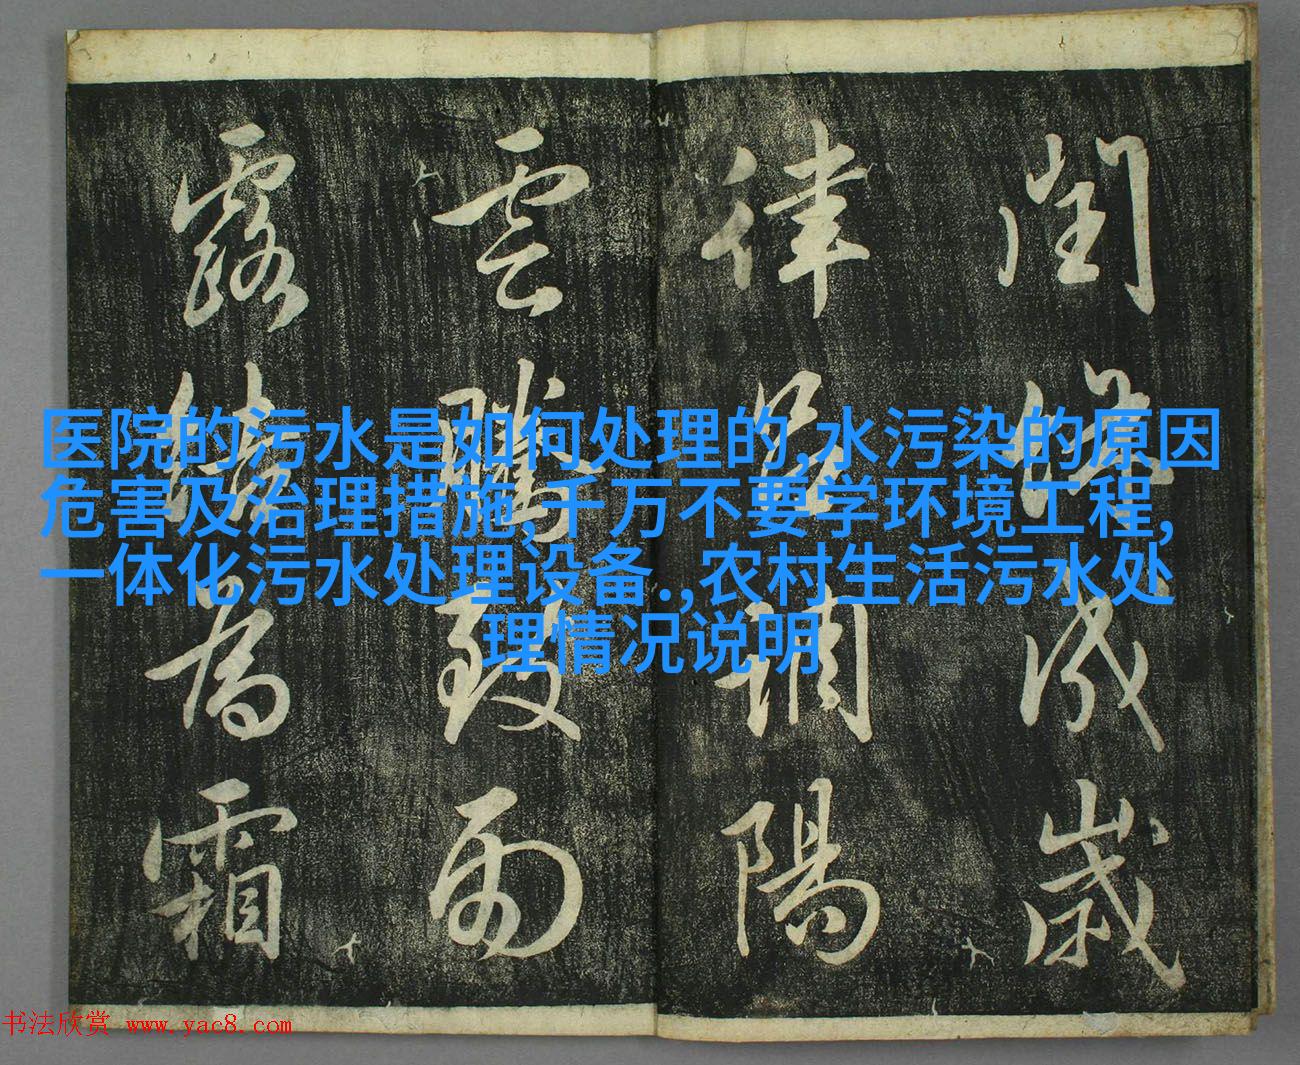 閏餘成歲
律呂調陽
雲騰致雨
露結為霜
医院的污水是如何处理的,水污染的原因
危害及治理措施,千万不要学环境工程,
一体化污水处理设备.,农村生活污水处
理情况说明
书法欣赏 www.yac8.com